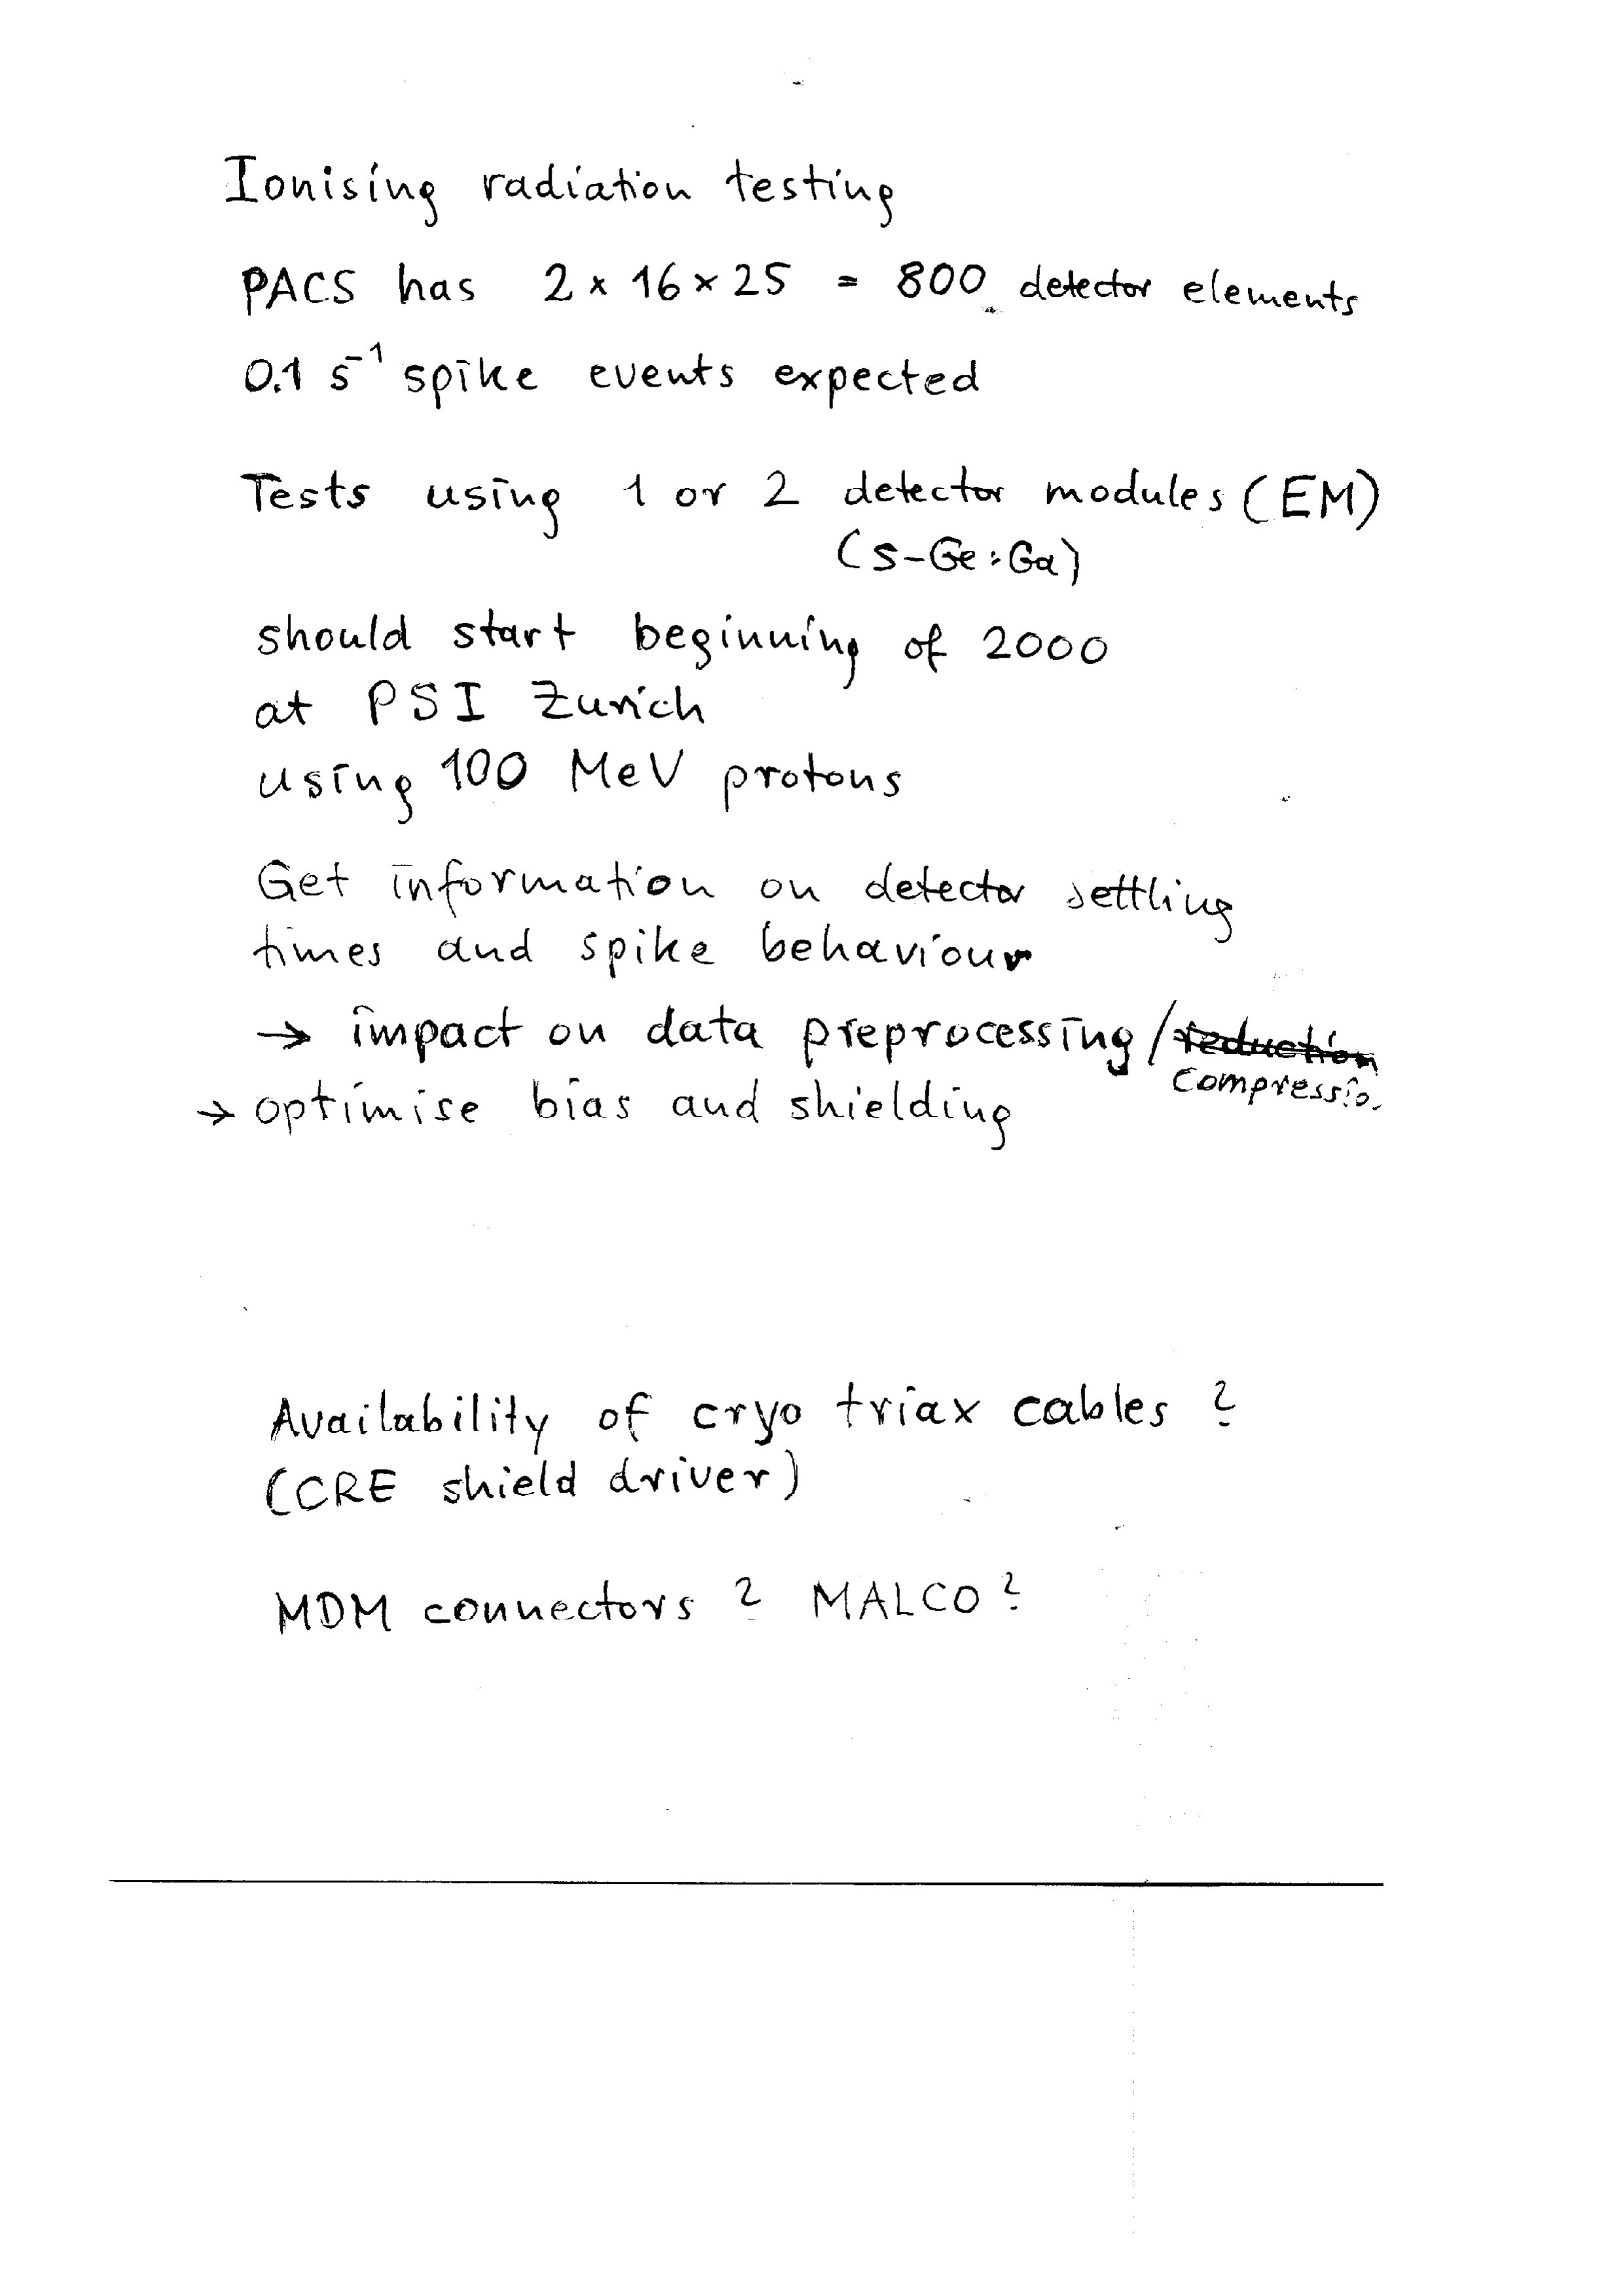 Ionising radiation testing
PACS has 2 x 16 x 25 = 800 detector elements
0.1 s⁻¹ spike events expected
Tests using 1 or 2 detector modules (EM)
(s-Ge:Ga)
should start beginning of 2000
at PSI Zurich
using 100 MeV protons
Get information on detector settling
times and spike behaviour
→ impact on data preprocessing/reduction
compressio
→ optimise bias and shielding
Availability of cryo triax cables ?
(CRE shield driver)
MDM connectors ? MALCO ?